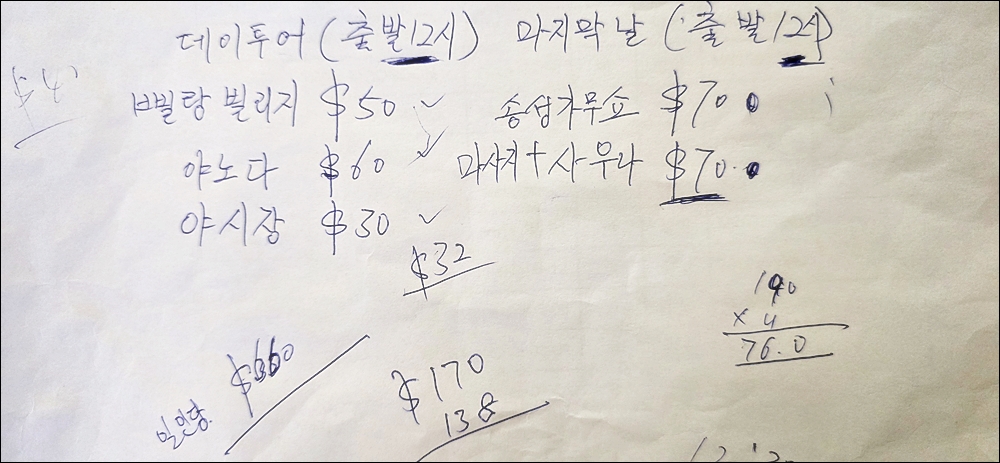 데이투어 (출발12시) 마지막 날 (출발12시)
삐랑 빌리지 $50 송성가무쇼 $70
야노다 $60 마사지 + 사우나 $70
야시장 $30
$32
190
x 4
76.0
$660
$170
138
일인당